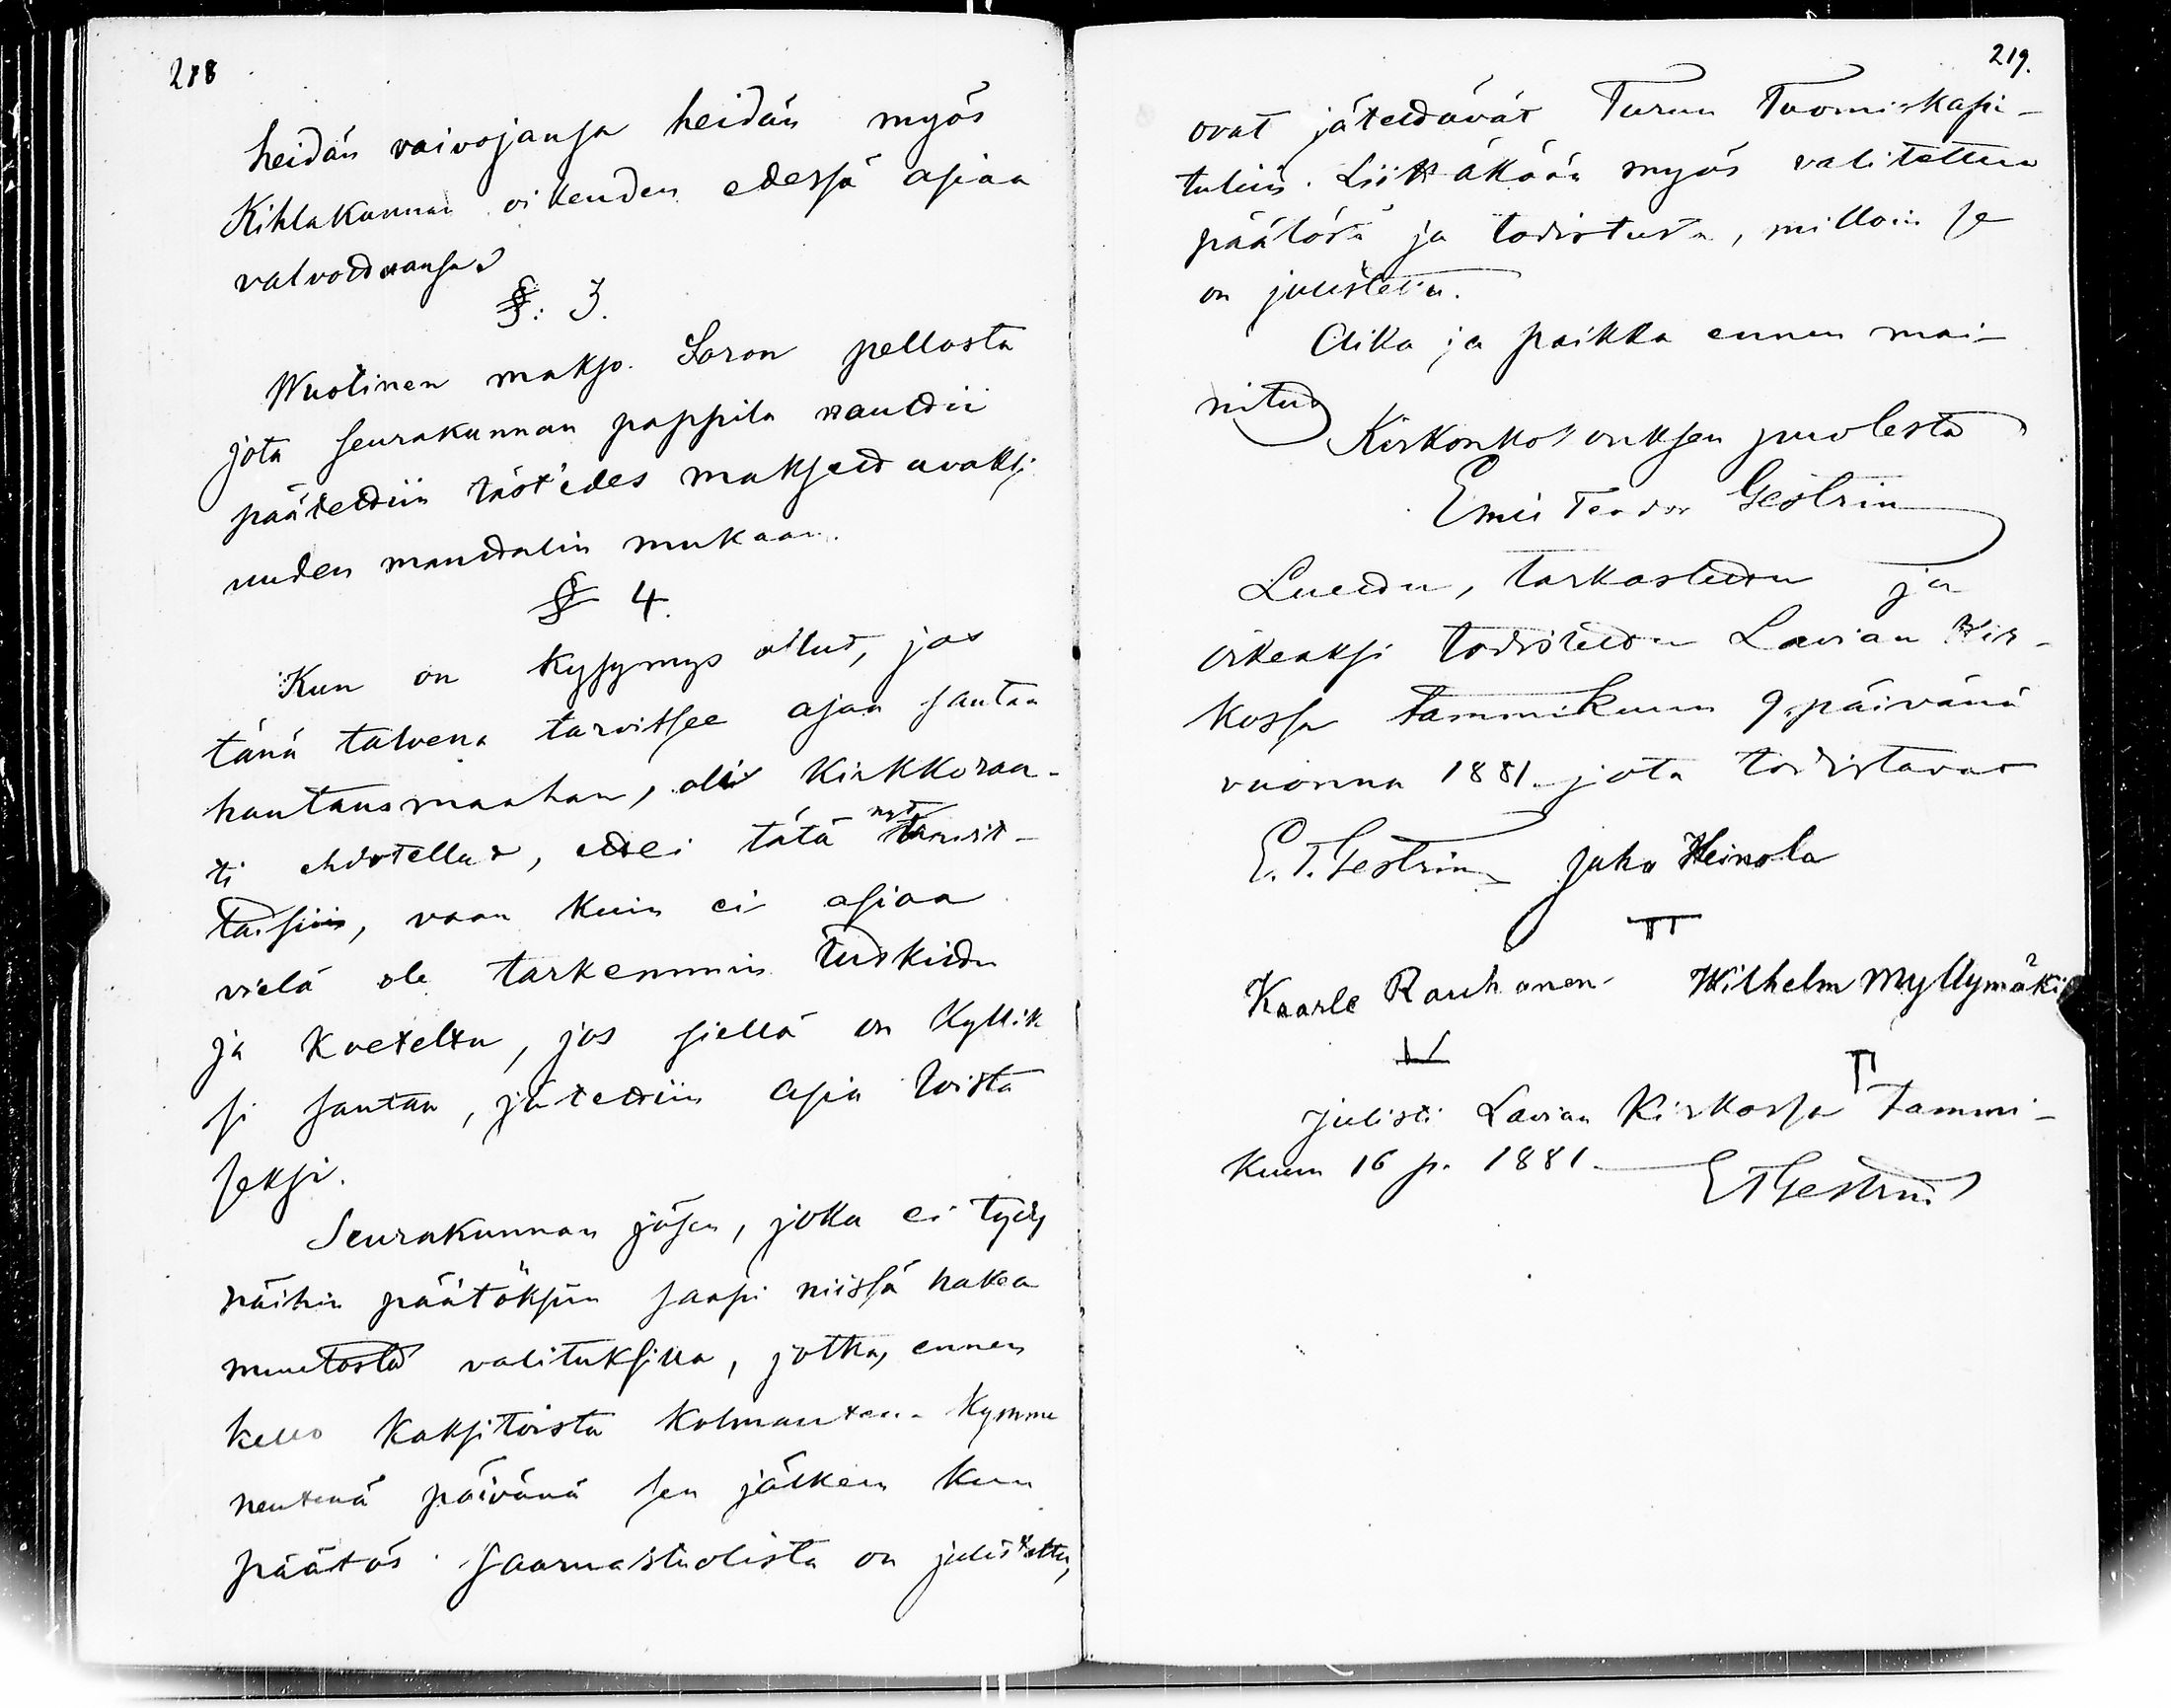 218
heidän vaivojansa heidän myös
Kihlakunnan oikeuden edessä asiaa
valvottuansa
§: 3.
Wuotinen makso Soron pellosta
jota seurakunnan pappila nauttii
päätettiin täst'edes maksettavaksi
uuden manttalin mukaan.
§ 4.
Kun on kysymys ollut, jos
tänä talvena tarvitsee ajaa santaa
hautausmaahan, oli Kirkkoraa-
ti ehdotellut, ettei tätä nyt tarvit-
taisiin, vaan kuin ei asiaa
vielä ole tarkemmin tutkittu
ja koeteltu, jos siellä on kyllik
si santaa, jätettiin asia toista
seksi.
Seurakunnan jäsen, joka ei tydy
näihin päätöksiin saapi niissä hakea
muutosta valituksilla, jotka, ennen
kello kaksitoista kolmantena kymme
nentenä päivänä sen jälkeen kun
päätös saarnastuolista on julistettu,
219.
ovat jätettävät Turun Tuomiokapi-
tuliin. Liittäköön myös valitettua
päätöstä ja todistusta, milloin se
on julistettu.
Aika ja paikka ennen mai-
nitut
Kirkonkokouksen puolesta
Emil Teodor Gestrin
Luettu, tarkastettu ja
oikeaksi todistettu Lavian Kir-
kossa tammikuun 9 päivänä
vuonna 1881. jota todistavat
E. T. Gestrin Juho Heinola
Kaarle Rauhanen Wilhelm Myllymäki
Julisti Lavian Kirkossa tammi-
kuun 16 p. 1881. ET Gestrin